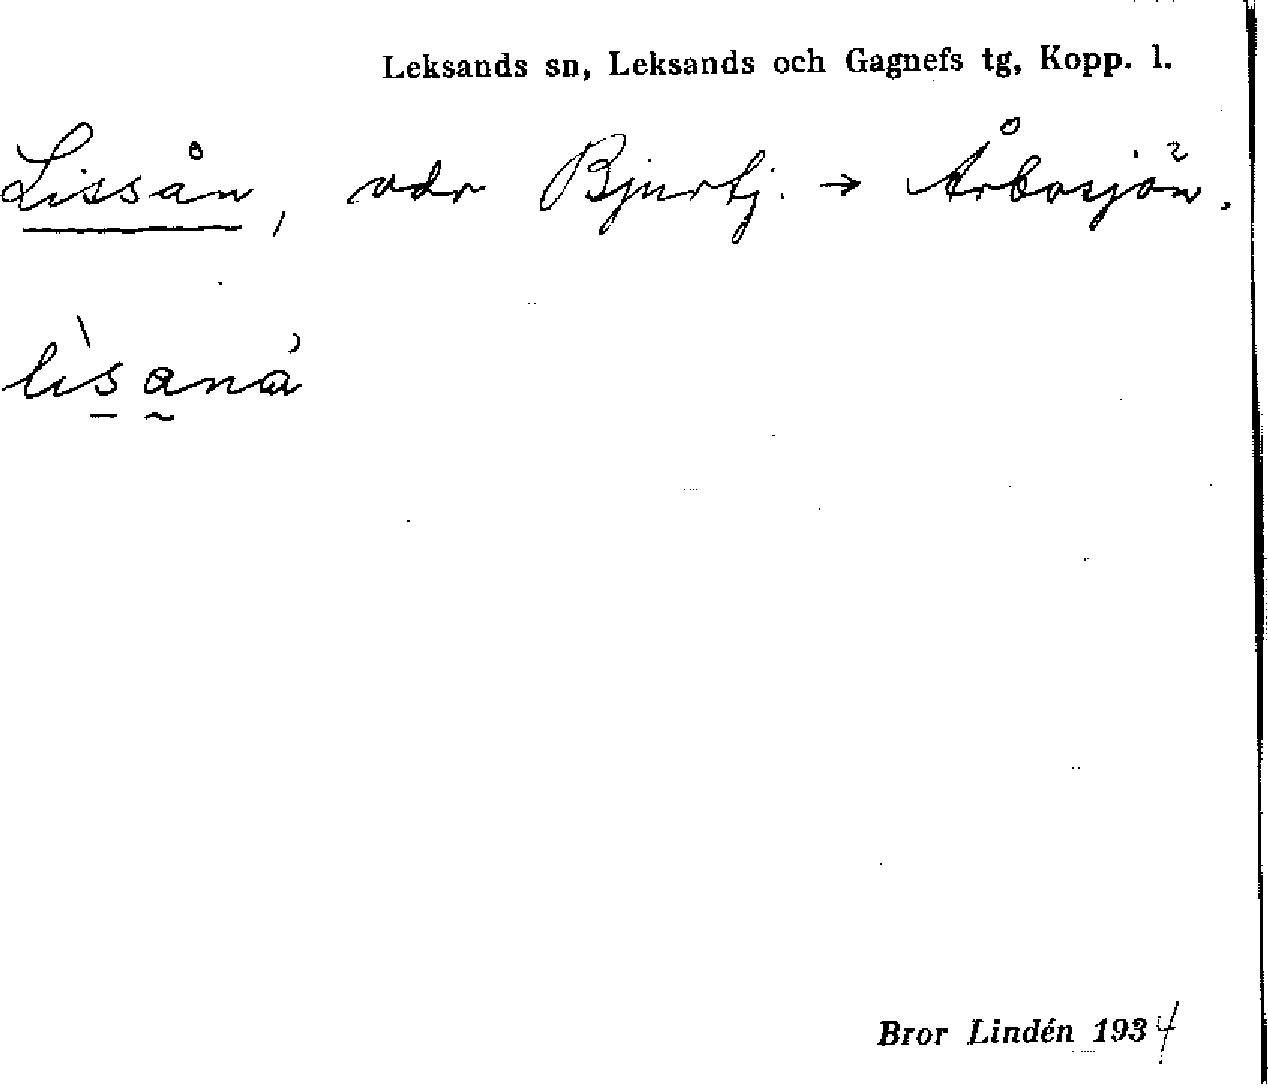 Leksands sn, Leksands och Gagnefs tg, Kopp. l.
Lissån, vdr Bjurtj. → Årbosjön.
lìsaná
Bror Lindén 1934